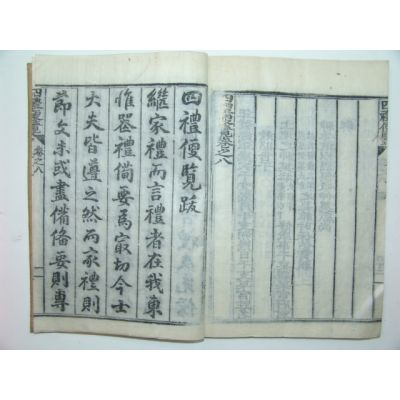 四禮便覽
四禮便覽卷之八
四禮便覽跋
繼家禮而言禮者在我東
惟喪禮備要爲最切今士
大夫皆遵之然而家禮則
節文未或盡備備要則專
四禮便覽 卷之八